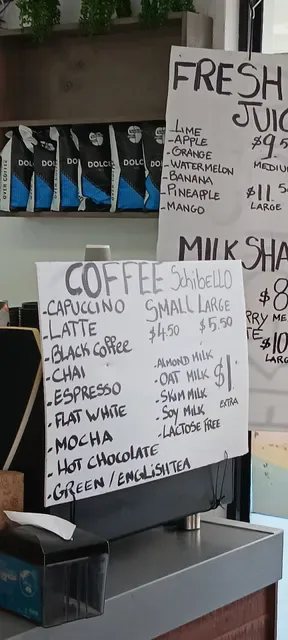 FRESH
JUIC
-LIME
-APPLE
-ORANGE
-WATERMELON
-BANANA
-PINEAPPLE
-MANGO
$9.5
MEDIU
$11.50
LARGE
MILKSHA
$8
ME
$10
LARG
RRY
TE
DOLC
DOLCI
DOLCI
DOLCI
DOL
COFFEE Schibello
SMALL LARGE
$4.50 $5.50
-CAPUCCINO
-LATTE
-BLACK COFFEE
-CHAI
-ESPRESSO
-FLAT WHITE
-MOCHA
-HOT CHOCOLATE
-GREEN/ENGLISH TEA
-ALMOND MILK
-OAT MILK
-SKIM MILK
-SOY MILK
-LACTOSE FREE
$1
EXTRA